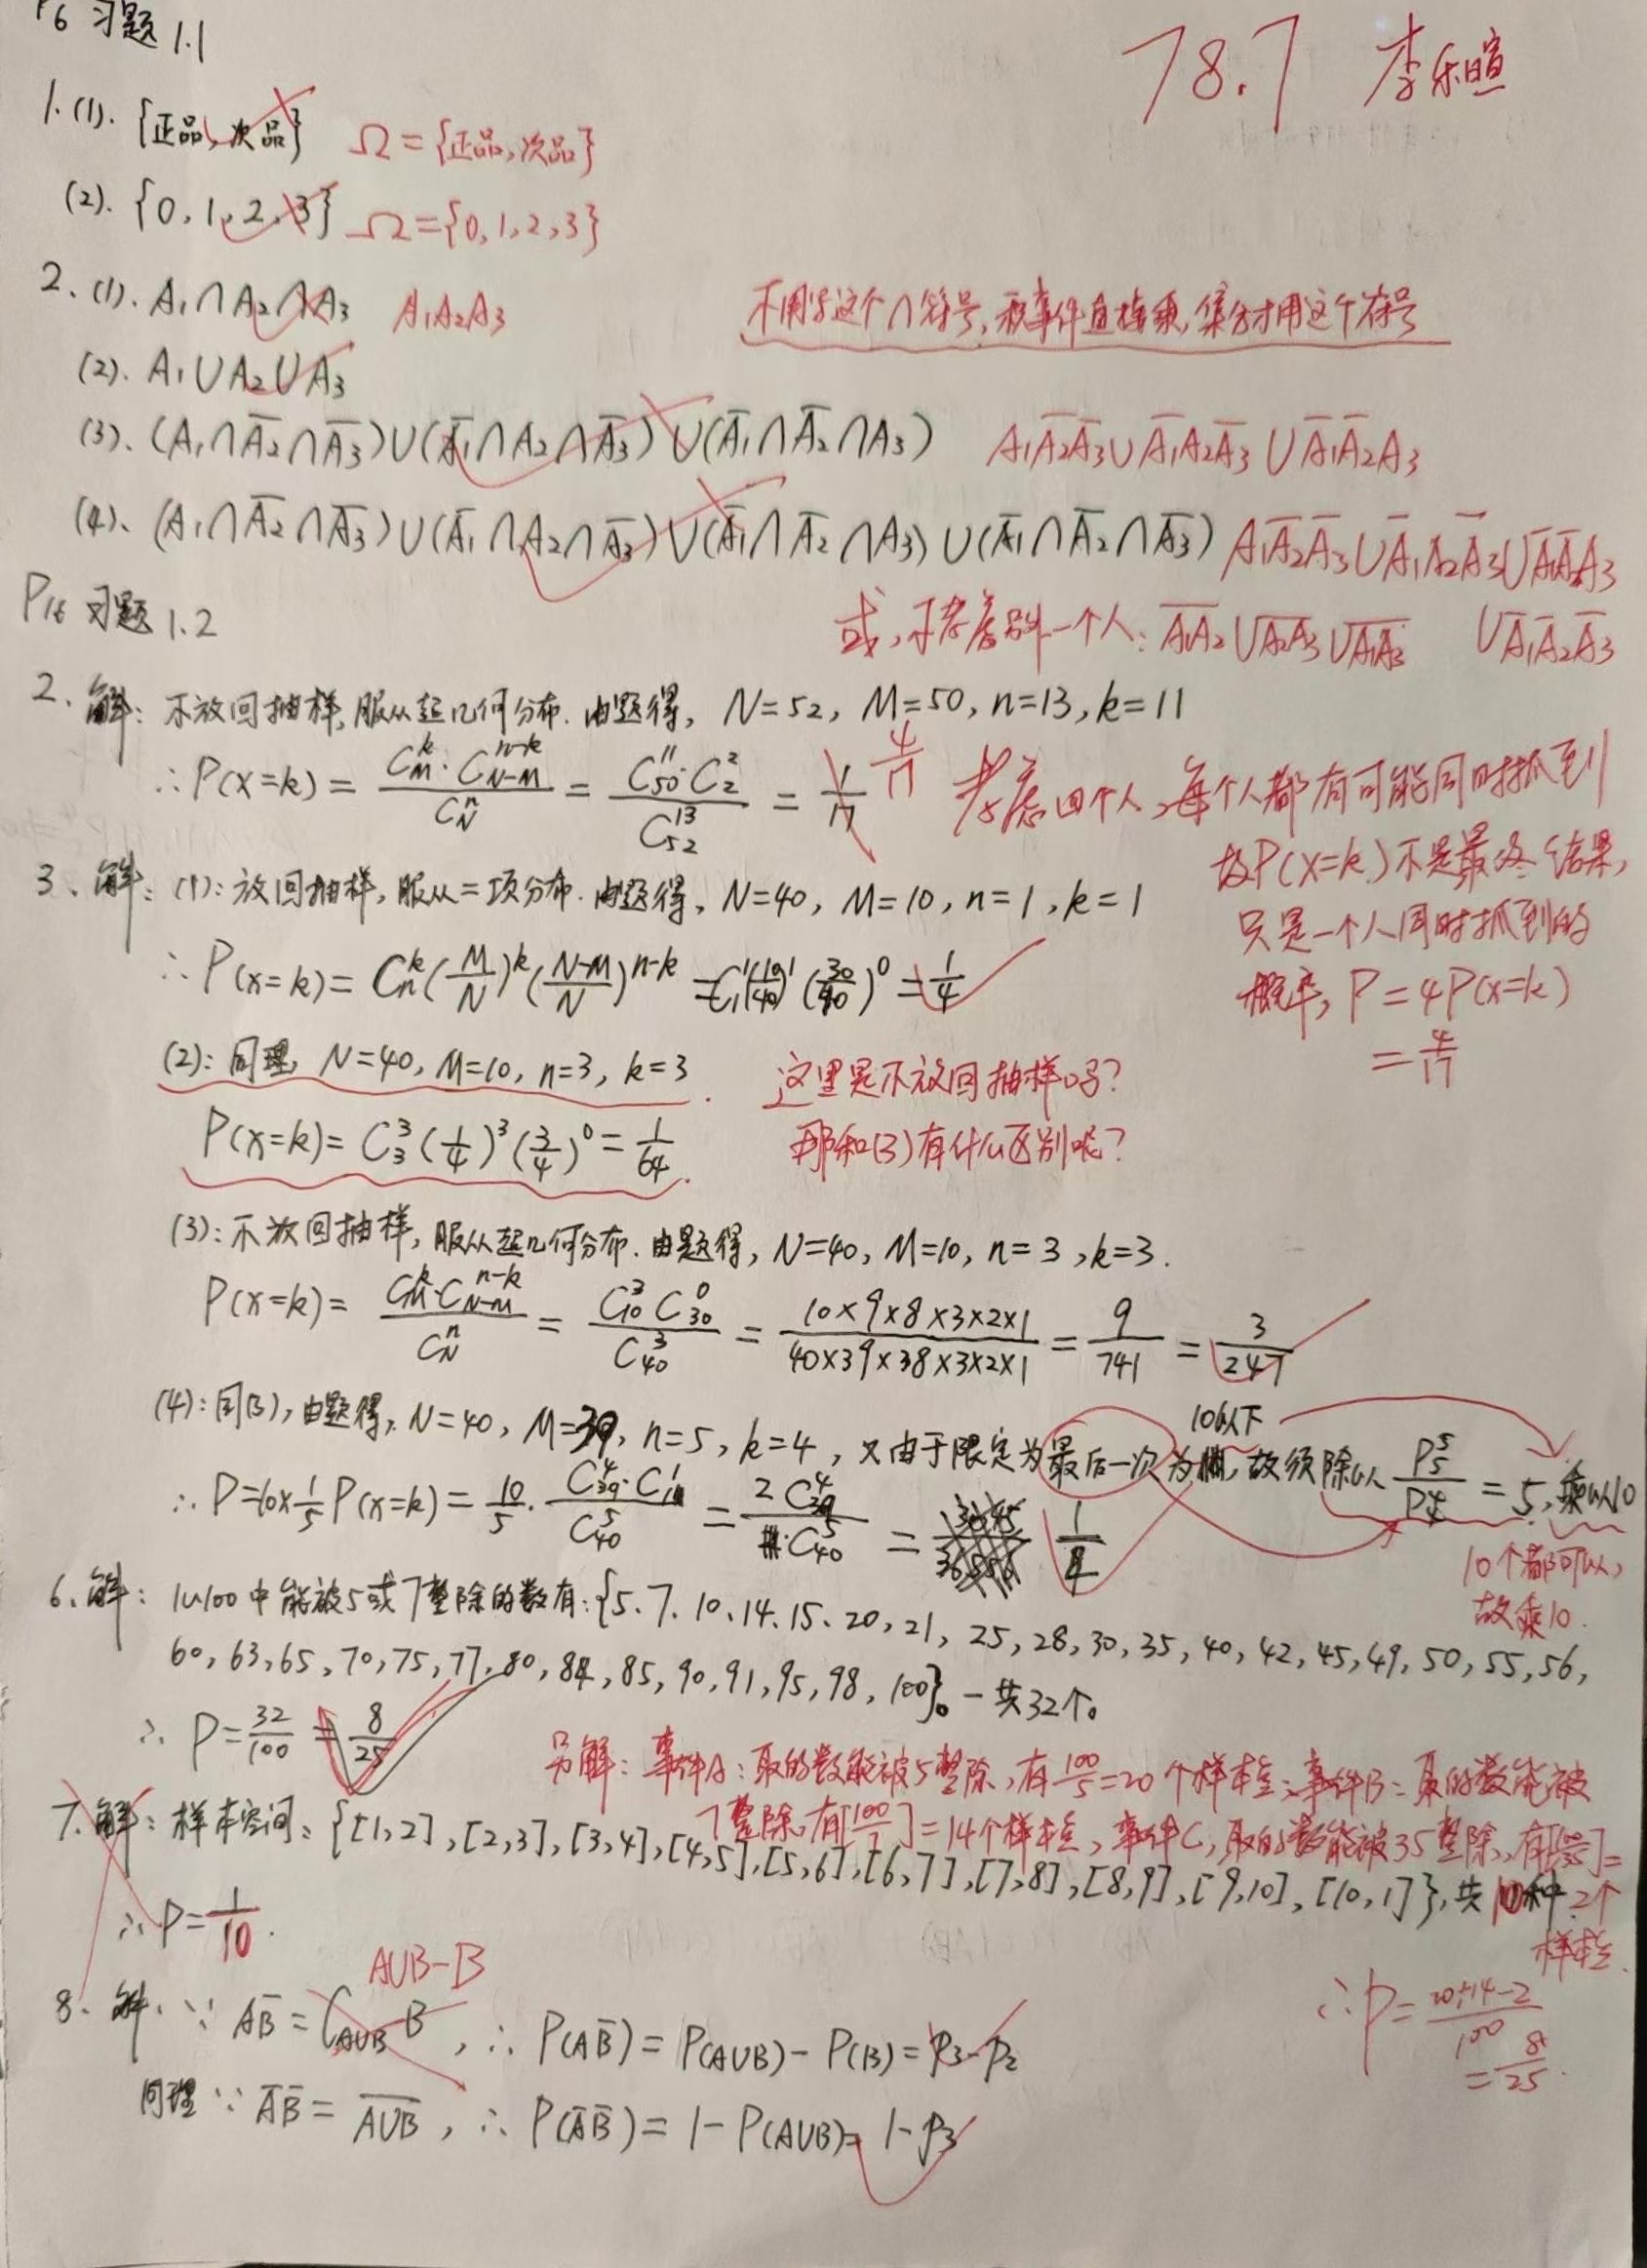 P6 习题1.1
78.7 李乐暄
1.(1). {正品, 次品} Ω={正品,次品}
(2). {0,1,2,3} Ω={0,1,2,3}
2、(1). A₁∩A₂∩A₃ A₁A₂A₃ 不用写这个∩符号,积事件直接乘,集合才用这个符号
(2). A₁∪A₂∪A₃
(3). (A₁∩A̅₂∩A̅₃)∪(A̅₁∩A₂∩A̅₃)∪(A̅₁∩A̅₂∩A₃) A₁A̅₂A̅₃∪A̅₁A₂A̅₃∪A̅₁A̅₂A₃
(4)、(A₁∩A̅₂∩A̅₃)∪(A̅₁∩A₂∩A̅₃)∪(A̅₁∩A̅₂∩A₃)∪(A̅₁∩A̅₂∩A̅₃) A₁A̅₂A̅₃∪A̅₁A₂A̅₃∪A̅₁A̅₂A₃
∪A̅₁A̅₂A̅₃
P16 习题1.2
或,不考虑另外一个人: A̅₁A̅₂∪A̅₂A̅₃∪A̅₁A̅₃
2、解: 不放回抽样,服从超几何分布. 由题得, N=52, M=50, n=13, k=11
∴P(X=k)= C_M^k·C_{N-M}^{n-k}/C_N^n = C_50^11·C_2^2/C_52^13 = 1/17 4/17
考虑四个人,每个人都有可能同时抓到
故P(X=k)不是最终结果,
只是一个人同时抓到的
概率, P=4P(X=k)
=4/17
3、解: (1): 放回抽样,服从二项分布. 由题得, N=40, M=10, n=1, k=1
∴P(X=k)= C_n^k(M/N)^k(N-M/N)^{n-k} =C_1^1(10/40)^1(30/40)^0=1/4
(2): 同理, N=40, M=10, n=3, k=3. 这里是不放回抽样吗?
P(X=k)= C_3^3(1/4)^3(3/4)^0=1/64. 那和(3)有什么区别呢?
(3): 不放回抽样, 服从超几何分布. 由题得, N=40, M=10, n=3, k=3.
P(X=k)= C_M^k·C_{N-M}^{n-k}/C_N^n = C_10^3 C_30^0/C_40^3 = 10×9×8×3×2×1/40×39×38×3×2×1 = 9/741 = 3/247
(4): 同(3), 由题得, N=40, M=39, n=5, k=4, 又由于限定为最后一次为 10以下, 故须除以 P_5^5/P_4^4 =5, 乘以10
∴P=10×1/5 P(X=k)= 10/5 · C_39^4·C_1^1/C_40^5 = 2C_39^4/C_40^5 = 1/4
10个都可以,
故乘10.
6、解: 1~100中能被5或7整除的数有:{5、7、10、14、15、20, 21, 25, 28, 30, 35, 40, 42, 45, 49, 50, 55, 56,
60, 63, 65, 70, 75, 77, 80, 84, 85, 90, 91, 95, 98, 100}。一共32个。
∴P=32/100=8/25
另解: 事件A: 取的数能被5整除, 有100/5=20个样本点; 事件B: 取的数能被
7整除, 有[100/7]=14个样本点, 事件C, 取的数能被35整除, 有[100/35]=
2个
样本点.
∴P=20+14-2/100
=8/25.
7、解: 样本空间: {[1,2],[2,3],[3,4],[4,5],[5,6],[6,7],[7,8],[8,9],[9,10],[10,1]}, 共10种
∴P=1/10.
AUB-B
8、解. ∵ AB̅=C_{AUB}B, ∴P(AB̅)=P(AUB)-P(B)=p₃-p₂
同理 ∵ A̅B̅= \overline{AUB}, ∴P(A̅B̅)=1-P(AUB)=1-p₃